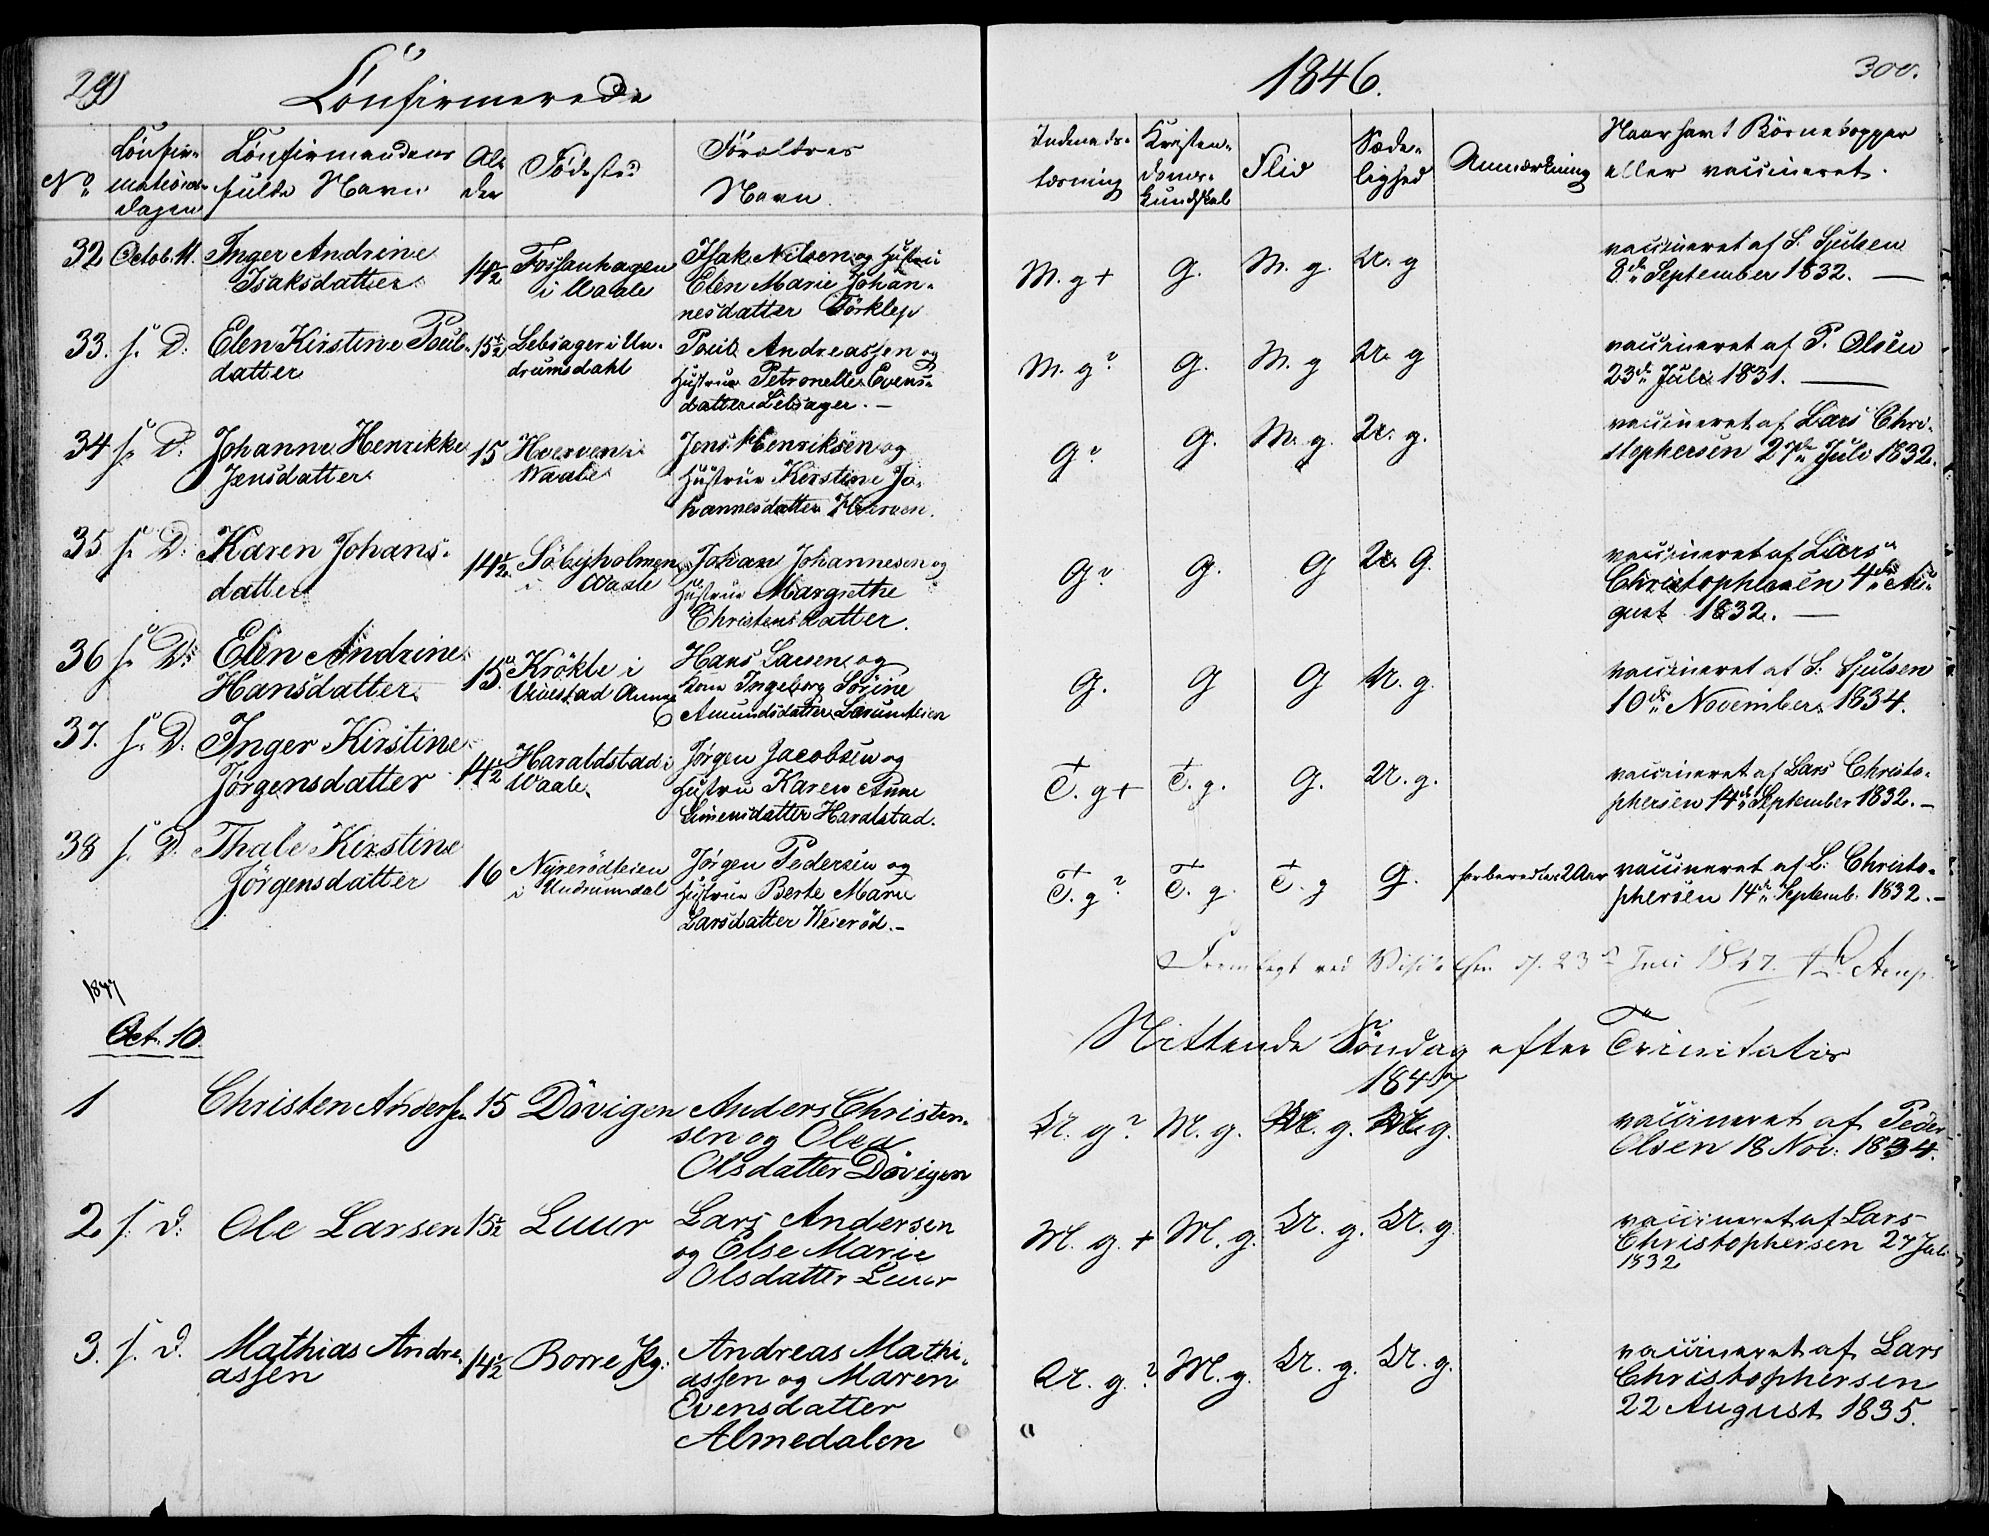 299
Confirmerede
1846.
300.
No
Confir-
mations-
dagen
Confirmandens
fulde Navn
Al-
der
Fødested
Forældres
Navn.
Indenads-
læsning
Kristen-
doms-
kundskab
Flid
Sæde-
lighed
Anmærkning
Naar havt Børnekopper
eller vaccineret.
32 Octob. 11. Inger Andrine
Isaksdatter
14½ Fossanhagen
i Waale
Isak Nilsen og Hustru
Elen Marie Johan-
nesdatter Törklep
M. g + G. M. g. M. g
vaccineret af S. Sjulsen
8de September 1832. —
33. s. D. Elen Kirstine Pouls-
datter
15½ Lebsager i Un-
drumsdahl
Poul Andreassen og
Hustrue Petronelle Evens-
datter Lebsager. —
M. g? G. M. g M. g
vaccineret af P. Olsen
23de Juli 1831. —
34 s. D. Johanne Henrikke
Jensdatter
15 Hverven i
Waale
Jens Henriksen og
Hustrue Kirstine Jo-
hannesdatter Hverven.
G? G. M. g. M. g.
vaccineret af Lars Chri-
stophersen 27de Juli 1832.
35 s. D. Karen Johans-
datter
14½ Söbyholmen
i Waale
Johan Johannesen og
Hustrue Margrethe
Christensdatter.
G? G. G M. G.
vaccineret af Lars
Christophersen 4de Au-
gust 1832. —
36 s. D. Elen Andrine
Hansdatter
15 Krökle i
Vivestad Annex
Hans Larsen og
Kone Ingeborg Sörine
Amundsdatter
G. G G M. g.
vaccineret af S. Sjulsen
10de November 1834.
37. s. D. Inger Kirstine
Jørgensdatter
14½ Haraldstad i
Waale.
Jørgen Jacobsen og
Hustru Karen Anne
Simensdatter Haralstad.
T. g + T. g. G. M. g.
vaccineret af Lars Christo-
phersen 14de September 1832. —
38 s. D. Thale Kirstine
Jörgensdatter
16 Nyrerödteien
i Undrumsdal
Jörgen Pedersen og
Hustrue Berte Marie
Larsdatter Weieröd. —
T. g? T. g. T. g G. forberedes 2 Aar
vaccineret af L. Christo-
phersen 14de Septemb. 1832. —
Fremlagt ved Visitatsen d. 23de Juli 1847. Arup.
1847
Oct. 10.
Nittende Söndag efter Trinitatis
1847
1 Christen Andersen 15 Dövigen Anders Christen-
sen og Olea
Olsdatter Dövigen
M. g? M. g. M. g. M. g.
vaccineret af Peder
Olsen 18 Nov: 1834.
2. s. d. Ole Larsen 15½ Luur Lars Andersen
og Else Marie
Olsdatter Luur
M. g. + M. g. M. g. M. g.
vaccineret af Lars
Christophersen 27 Juli
1832
3. s. d. Mathias Andre-
assen
14½ Borre Pg. Andreas Mathi-
assen og Maren
Evensdatter
Almedalen
M. g. ? M. g. M. g. M. g.
vaccineret af Lars
Christophersen
22 August 1835.